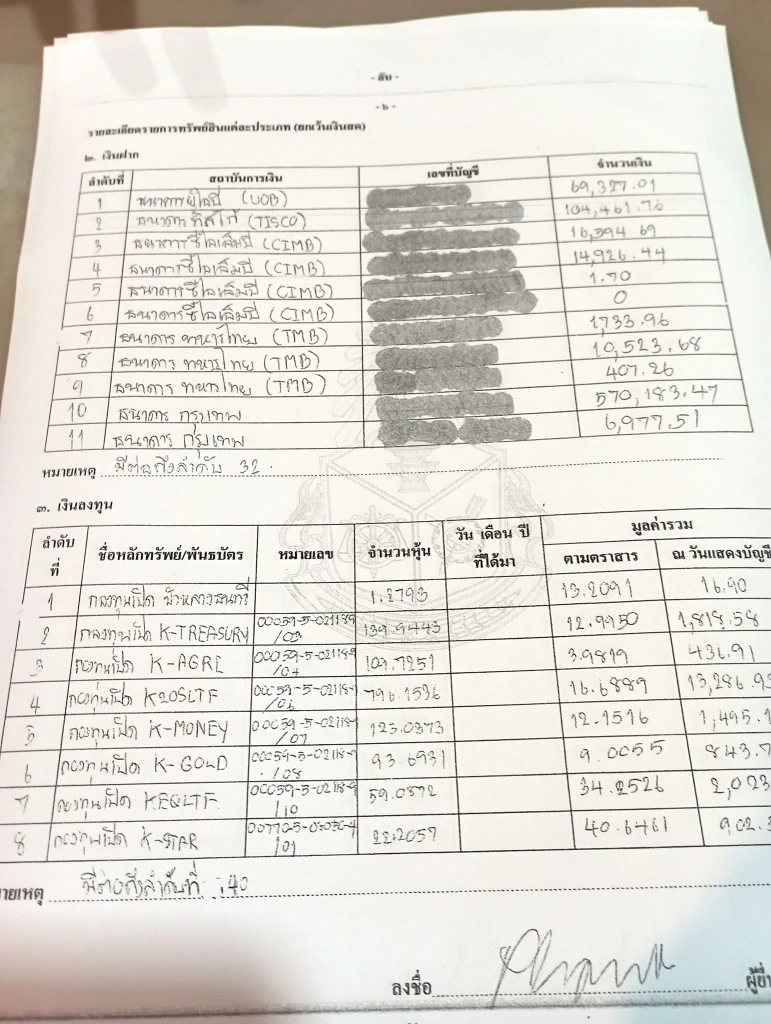 - ลับ -
- ๖ -
รายละเอียดรายการทรัพย์สินแต่ละประเภท (ยกเว้นเงินสด)
๒. เงินฝาก
ลำดับที่ สถาบันการเงิน เลขที่บัญชี จำนวนเงิน
1 ธนาคารยูโอบี (UOB) 69,327.01
2 ธนาคาร ทิสโก้ (TISCO) 104,461.76
3 ธนาคารซีไอเอ็มบี (CIMB) 16,394.69
4 ธนาคารซีไอเอ็มบี (CIMB) 14,926.44
5 ธนาคารซีไอเอ็มบี (CIMB) 1.70
6 ธนาคารซีไอเอ็มบี (CIMB) 0
7 ธนาคาร ทหารไทย (TMB) 1,733.96
8 ธนาคาร ทหารไทย (TMB) 10,523.68
9 ธนาคาร ทหารไทย (TMB) 407.26
10 ธนาคาร กรุงเทพ 570,183.47
11 ธนาคาร กรุงเทพ 6,977.51
หมายเหตุ มีต่อถึงลำดับ 32
๓. เงินลงทุน
ลำดับที่ ชื่อหลักทรัพย์/พันธบัตร หมายเลข จำนวนหุ้น วัน เดือน ปี ที่ได้มา มูลค่ารวม
ตามตราสาร ณ วันแสดงบัญชี
1 กองทุนเปิด บัวหลวงธนทวี 1.2793 13.2091 16.90
2 กองทุนเปิด K-TREASURY 00059-5-021189/03 139.9443 12.9950 1,818.58
3 กองทุนเปิด K-AGRI 00059-5-021189/04 109.7251 3.9819 436.91
4 กองทุนเปิด K20SLTF 00059-5-021189/06 796.1536 16.6889 13,286.9
5 กองทุนเปิด K-MONEY 00059-5-021189/07 123.0373 12.1516 1,495.
6 กองทุนเปิด K-GOLD 00059-5-021189/08 93.6931 9.0055 843.7
7 กองทุนเปิด KEQLTF 00059-5-021189/10 59.0872 34.2526 2,023
8 กองทุนเปิด K-STAR 22.2057 40.6461 902.
หมายเหตุ มีต่อถึงลำดับที่ 40
ลงชื่อ ผู้ยื่